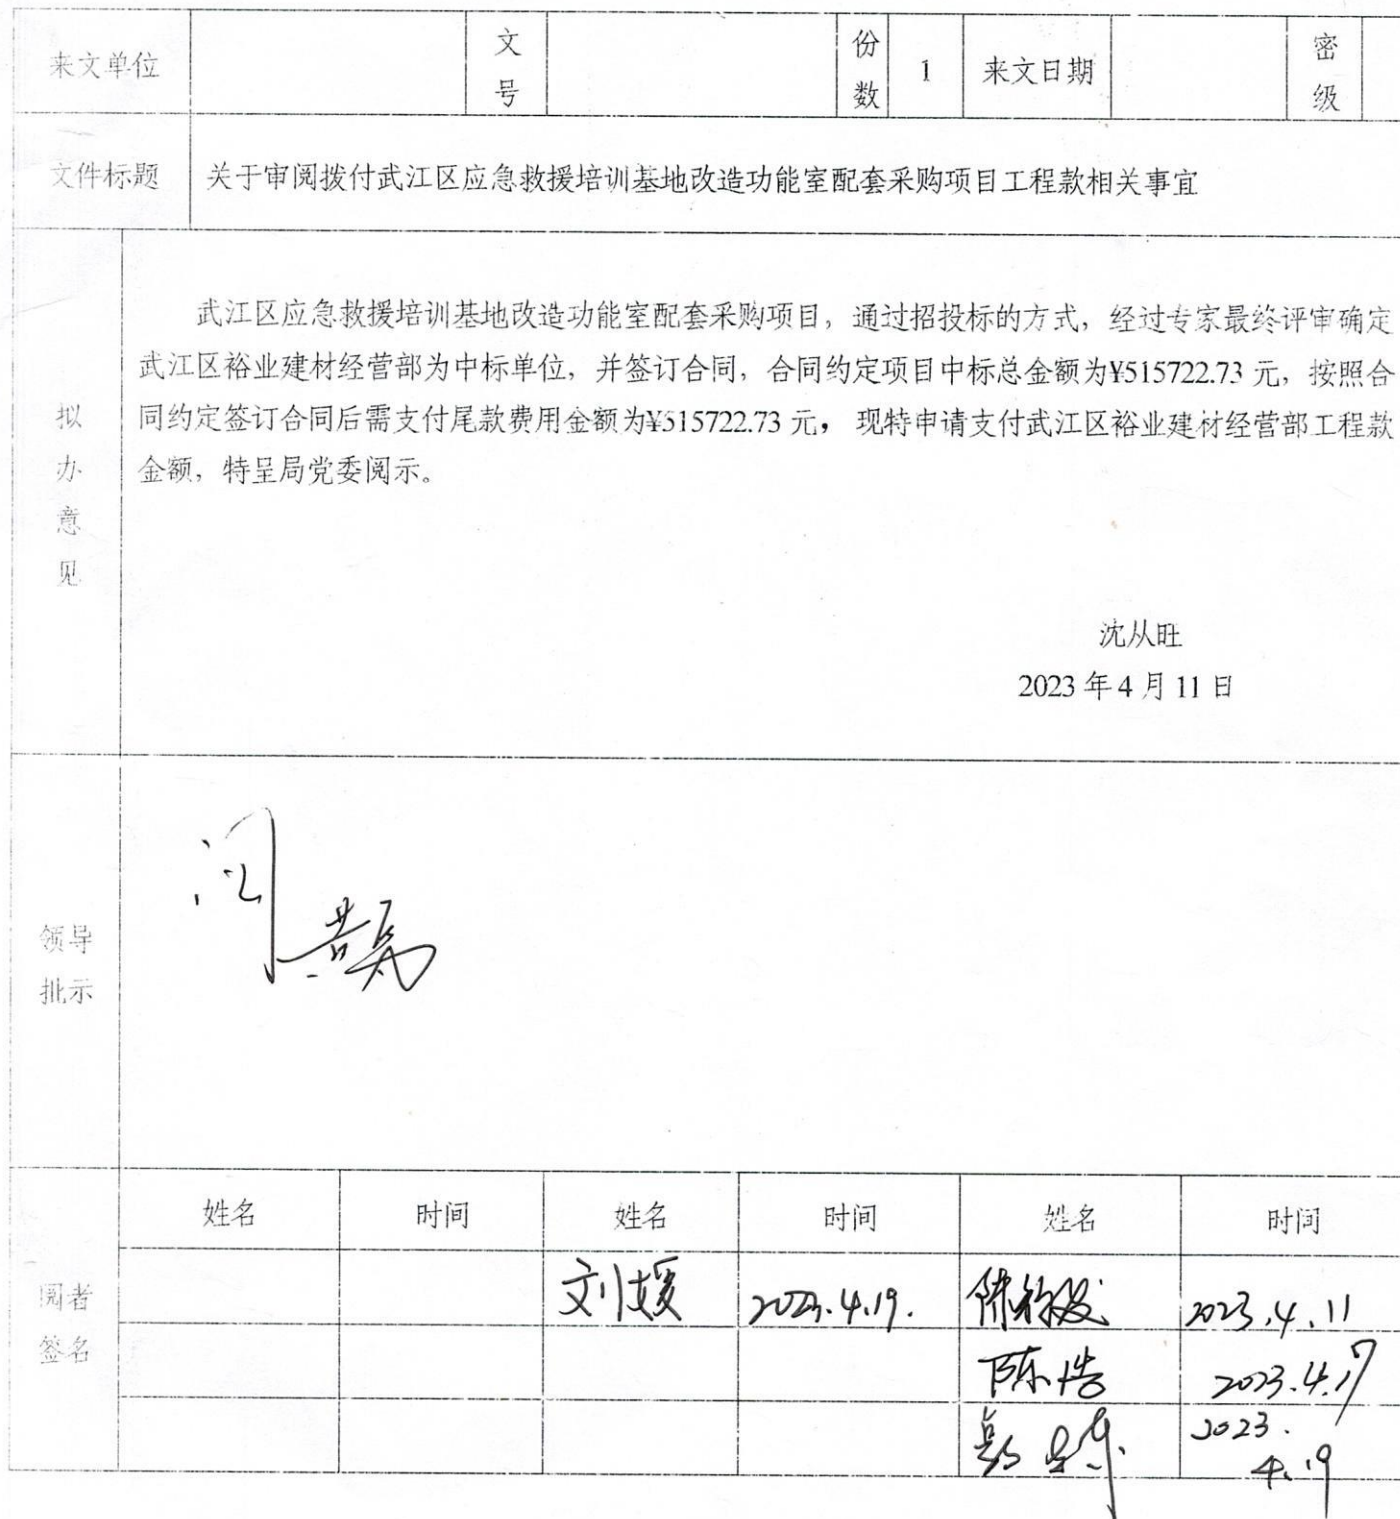 来文单位 文号 份数 1 来文日期 密级
文件标题 关于审阅拨付武江区应急救援培训基地改造功能室配套采购项目工程款相关事宜
拟办意见
武江区应急救援培训基地改造功能室配套采购项目，通过招投标的方式，经过专家最终评审确定
武江区裕业建材经营部为中标单位，并签订合同，合同约定项目中标总金额为¥515722.73 元，按照合
同约定签订合同后需支付尾款费用金额为¥515722.73 元， 现特申请支付武江区裕业建材经营部工程款
金额，特呈局党委阅示。
沈从旺
2023 年 4 月 11 日
领导
批示
姓名 时间 姓名 时间 姓名 时间
阅者
签名
刘媛 2023.4.19. 2023.4.11
陈浩 2023.4.17
2023.
4.19